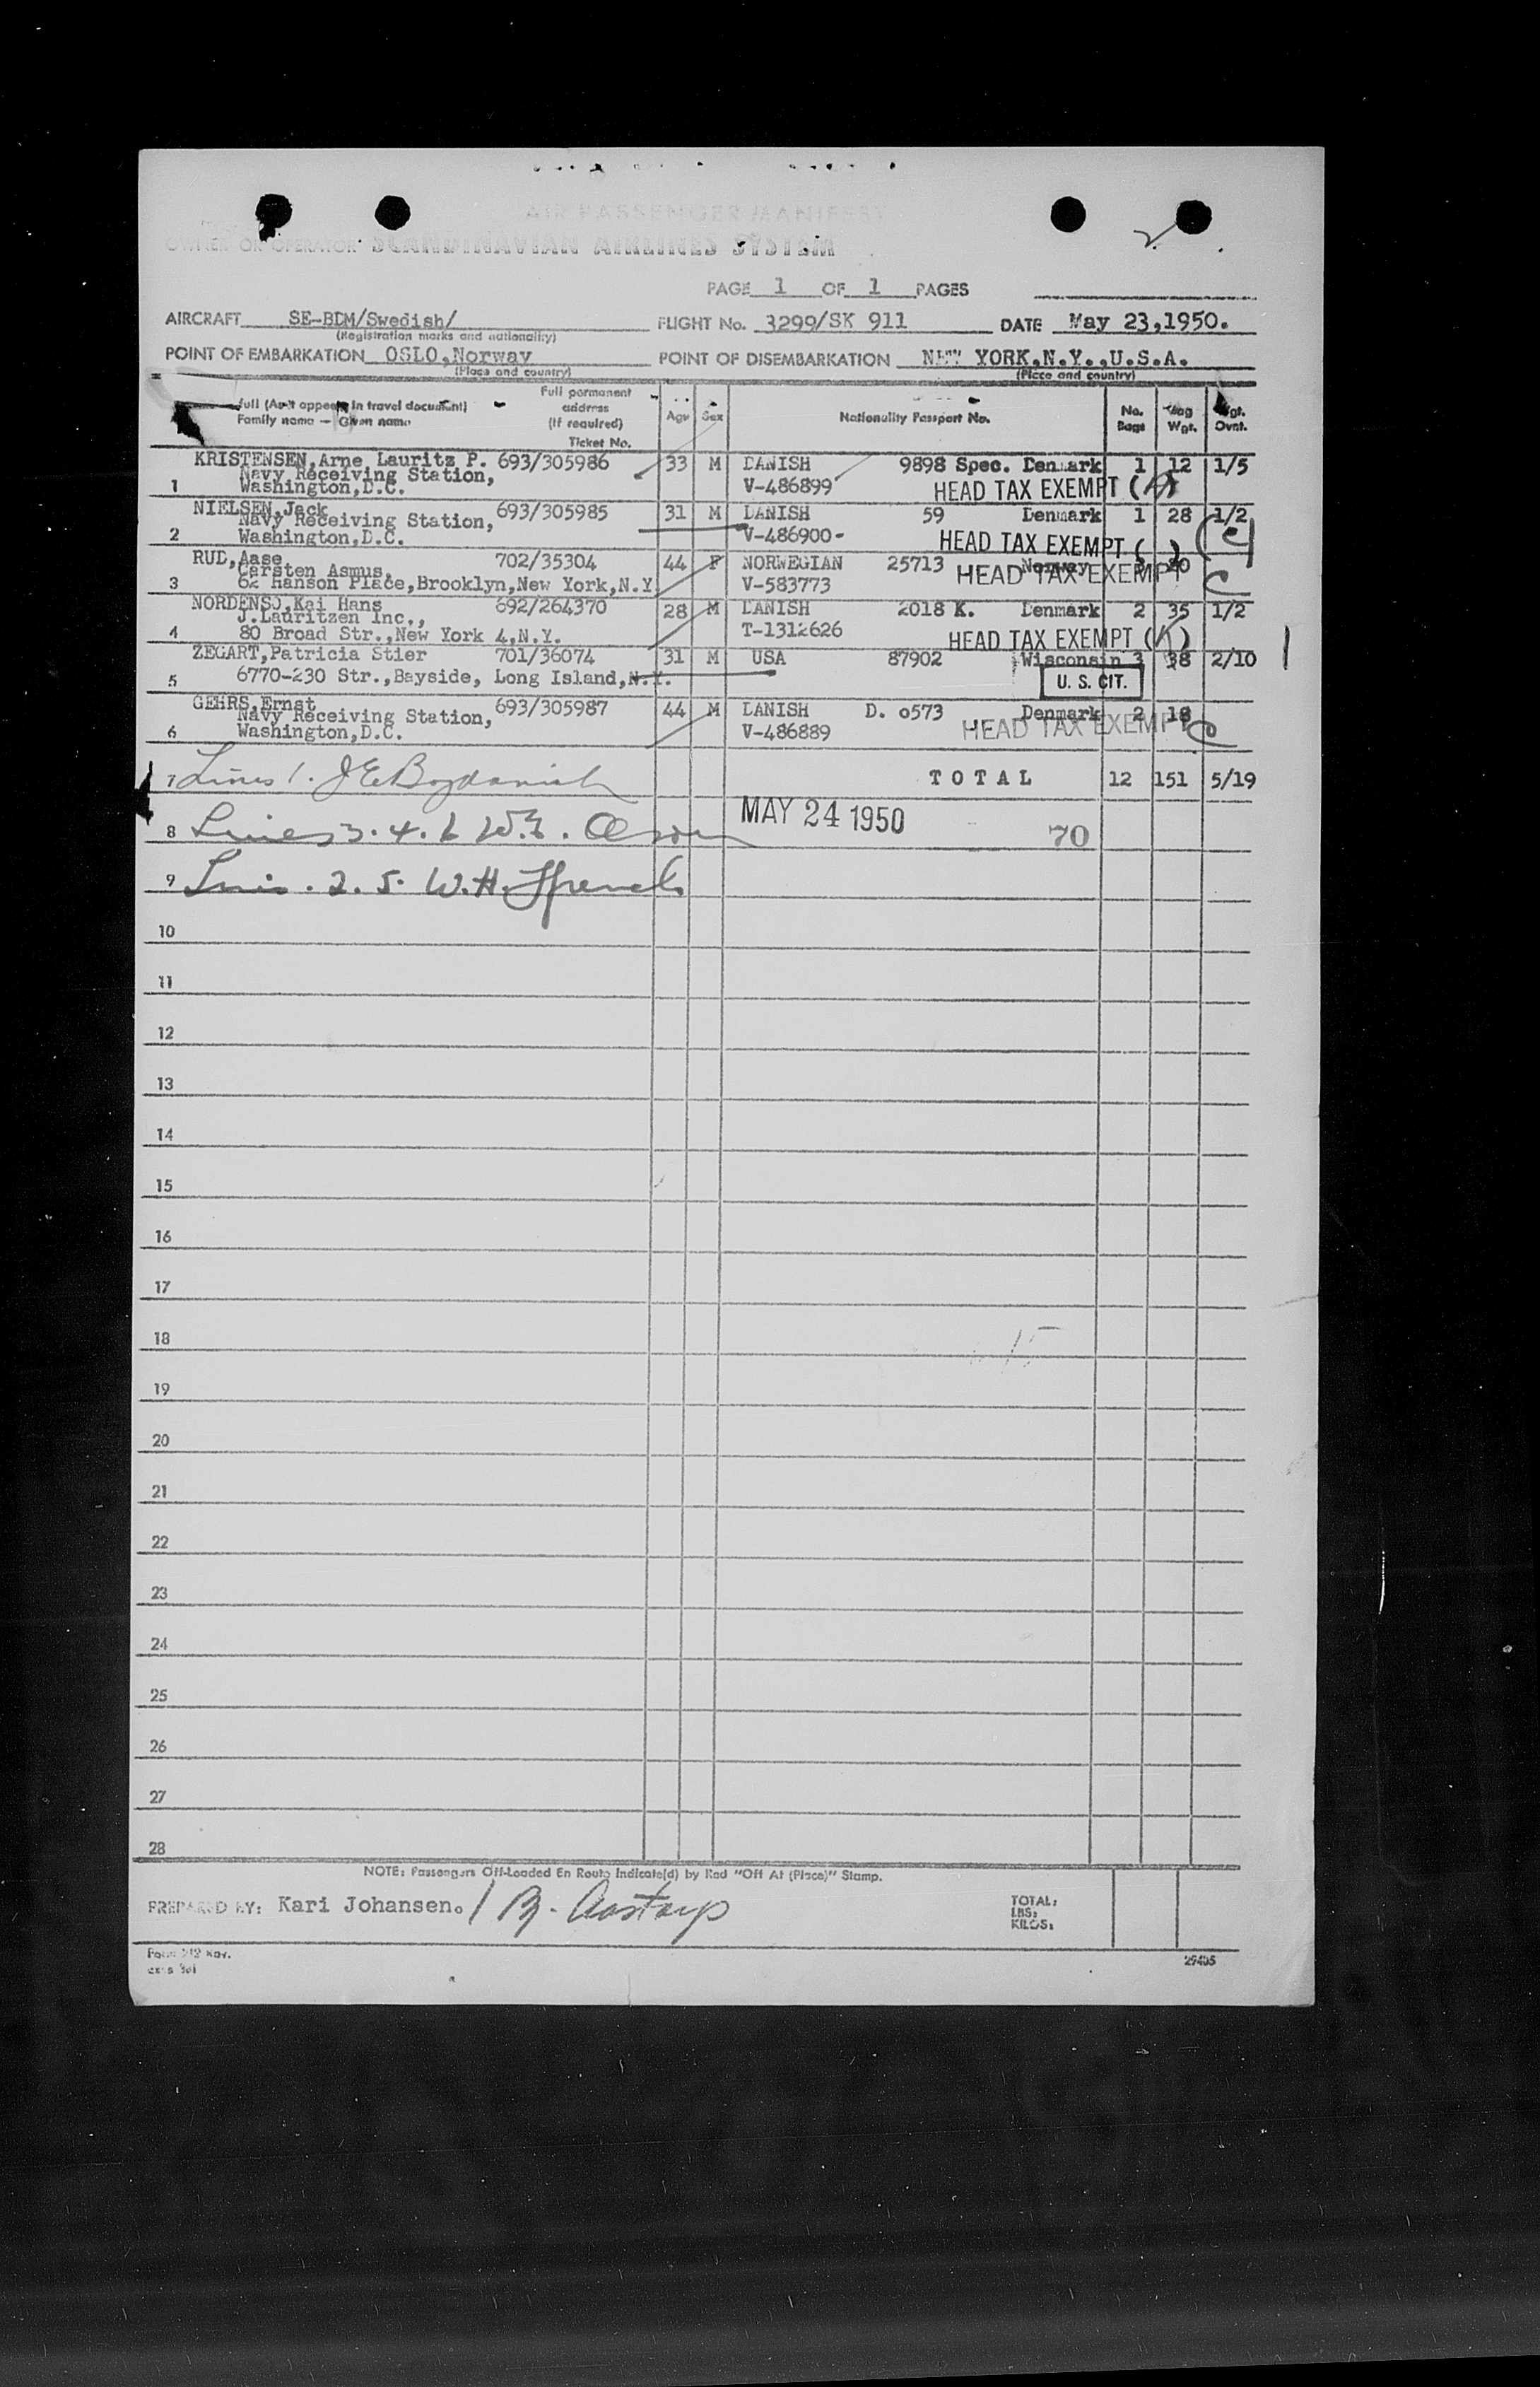 AIR PASSENGER MANIFEST
OWNER OR OPERATOR SCANDINAVIAN AIRLINES SYSTEM
PAGE 1 OF 1 PAGES
AIRCRAFT SE-BDM/Swedish/ FLIGHT No. 3299/SK 911 DATE May 23,1950.
(Registration marks and nationality)
POINT OF EMBARKATION OSLO,Norway POINT OF DISEMBARKATION NEW YORK,N.Y.,U.S.A.
(Place and country) (Place and country)
Full (As it appears in travel document) Full permanent address (If required) Age Sex Nationality Passport No. No. Bags Bag Wgt. Wgt. Ovnt.
Family name — Given name Ticket No.
KRISTENSEN,Arne Lauritz P. 693/305986 33 M DANISH 9898 Spec. Denmark 1 12 1/5
Navy Receiving Station, V-486899 HEAD TAX EXEMPT
1 Washington,D.C.
NIELSEN,Jack 693/305985 31 M DANISH 59 Denmark 1 28 1/2
Navy Receiving Station, V-486900-
2 Washington,D.C. HEAD TAX EXEMPT ( )
RUD,Aase 702/35304 44 F NORWEGIAN 25713 Norway 3 20
Carsten Asmus, HEAD TAX EXEMPT C
3 62 Hanson Place,Brooklyn,New York,N.Y. V-583773
NORDENSO,Kai Hans 692/264370 28 M DANISH 2018 K. Denmark 2 35 1/2
J.Lauritzen Inc., T-1312626
4 80 Broad Str.,New York 4,N.Y. HEAD TAX EXEMPT
ZEGART,Patricia Stier 701/36074 31 M USA 87902 Wisconsin 3 38 2/10
5 6770-230 Str.,Bayside, Long Island,N.Y. U. S. CIT.
GEHRS,Ernst 693/305987 44 M DANISH D. 0573 Denmark 2 18
Navy Receiving Station, HEAD TAX EXEMPT C
6 Washington,D.C. V-486889
7 Lines 1. J E Bogdanich TOTAL 12 151 5/19
MAY 24 1950
8 Lines 3. 4. 6 W. Olson 70
9 Lines . 2. 5. W.H. Ffrench
10
11
12
13
14
15
16
17
18
19
20
21
22
23
24
25
26
27
28
NOTE: Passengers Off-Loaded En Route Indicate(d) by Red "Off At (Place)" Stamp.
PREPARED BY: Kari Johansen. / B. Aastorp
TOTAL:
LBS:
KILOS:
29405